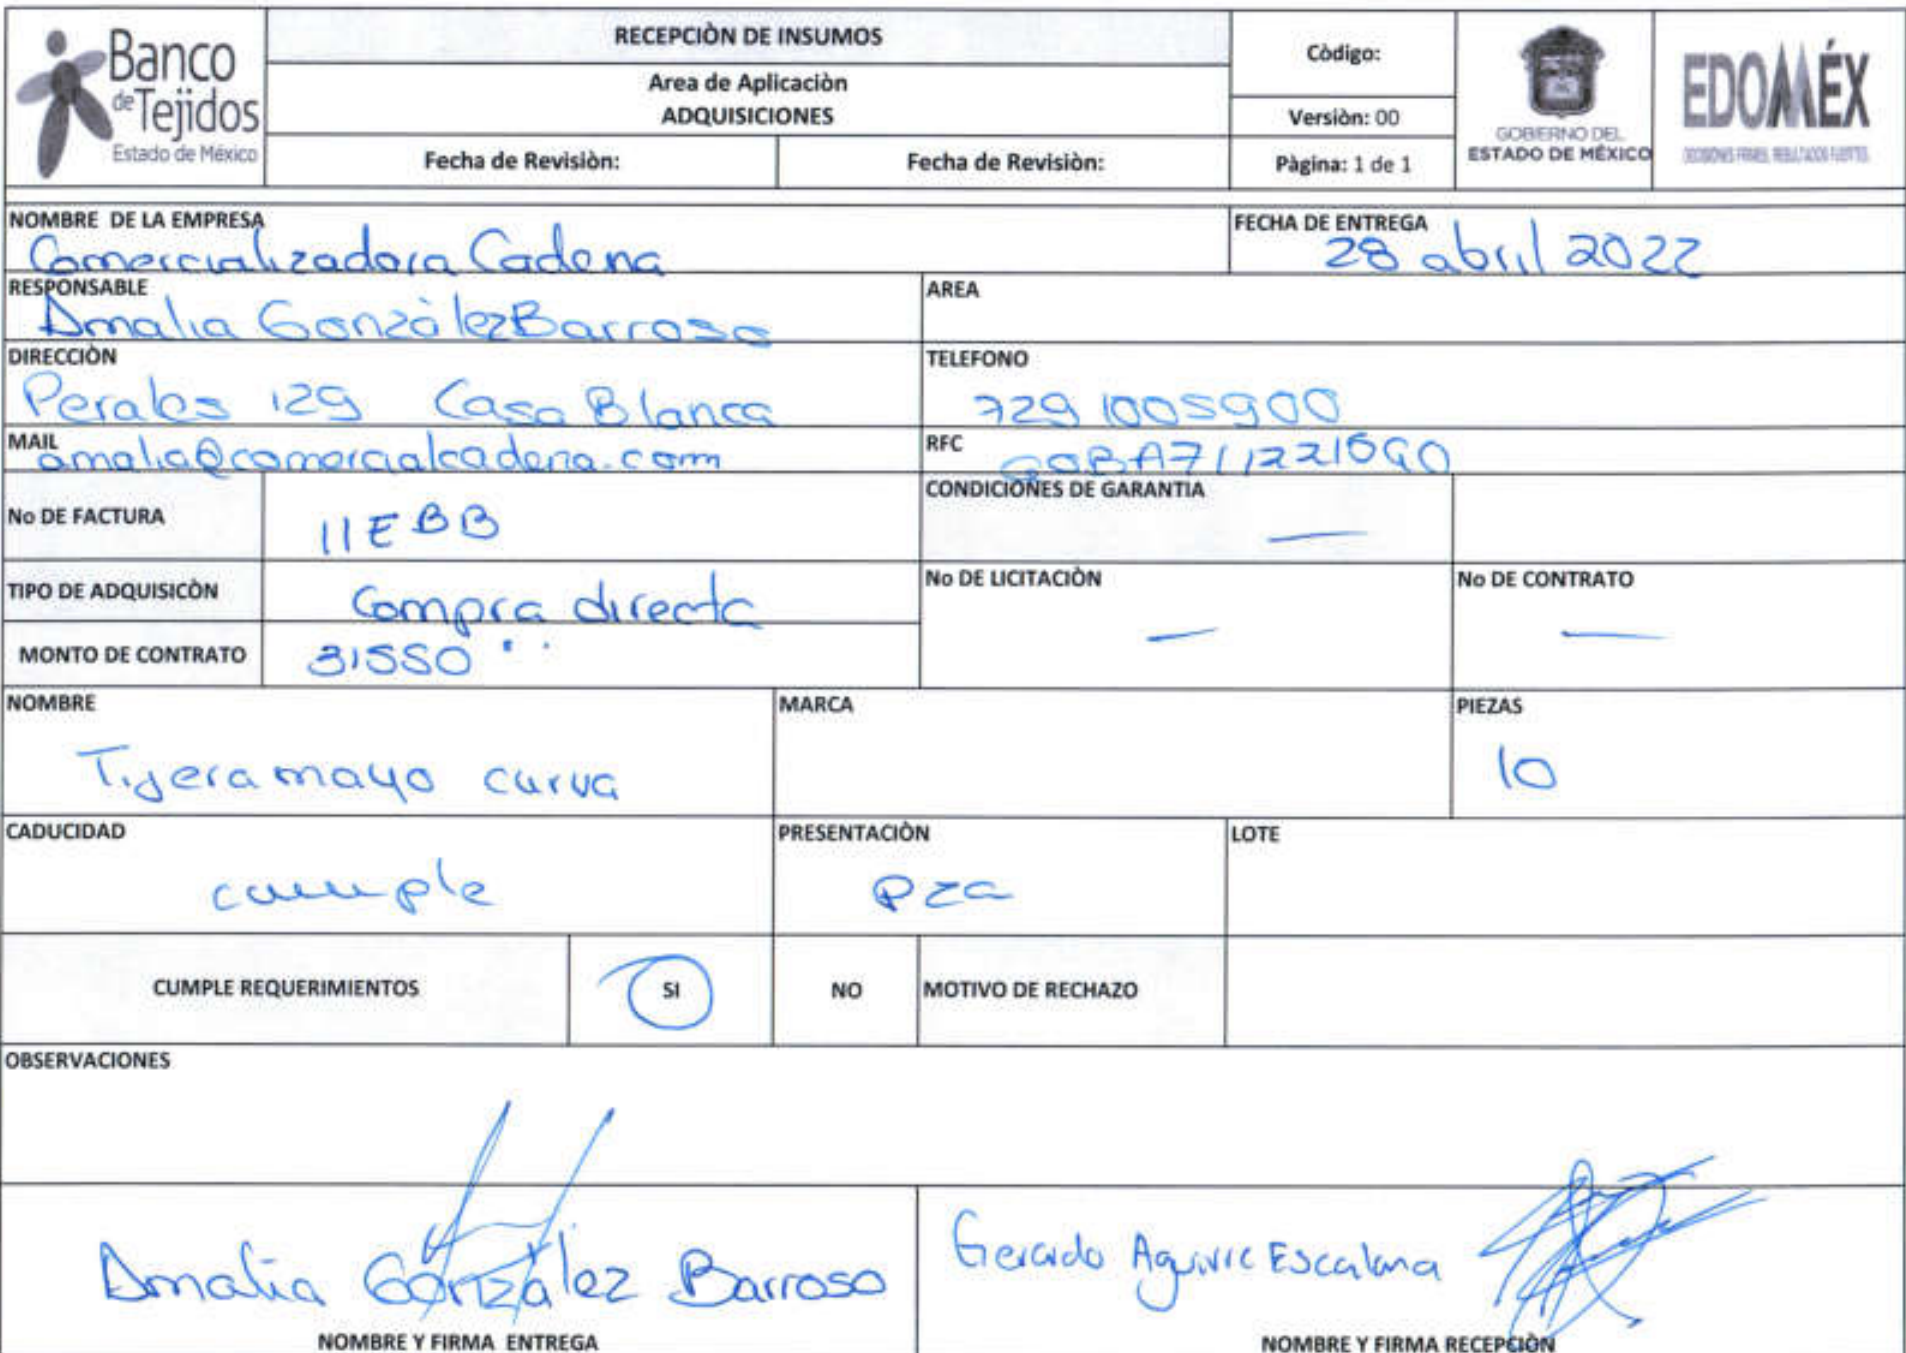 Banco
de Tejidos
Estado de México
RECEPCIÒN DE INSUMOS
Area de Aplicaciòn
ADQUISICIONES
Fecha de Revisiòn:
Fecha de Revisiòn:
Còdigo:
Versiòn: 00
Pàgina: 1 de 1
GOBIERNO DEL
ESTADO DE MÉXICO
EDOMÉX
DECISIONES FIRMES, RESULTADOS FUERTES.
NOMBRE DE LA EMPRESA
Comercializadora Cadena
FECHA DE ENTREGA
28 abril 2022
RESPONSABLE
Amalia Gonzàlez Barroso
AREA
DIRECCIÒN
Perales 129 Casa Blanca
TELEFONO
729 1005900
MAIL
amalia@comercialcadena.com
RFC
GOBA711221
No DE FACTURA
11EBB
CONDICIONES DE GARANTIA
—
TIPO DE ADQUISICÒN
Compra directa
No DE LICITACIÒN
—
No DE CONTRATO
—
MONTO DE CONTRATO
31550
NOMBRE
Tijera mayo curva
MARCA
PIEZAS
10
CADUCIDAD
cumple
PRESENTACIÒN
Pza
LOTE
CUMPLE REQUERIMIENTOS
SI
NO
MOTIVO DE RECHAZO
OBSERVACIONES
Amalia González Barroso
NOMBRE Y FIRMA ENTREGA
Gerardo Aguirre Escalona
NOMBRE Y FIRMA RECEPCIÒN